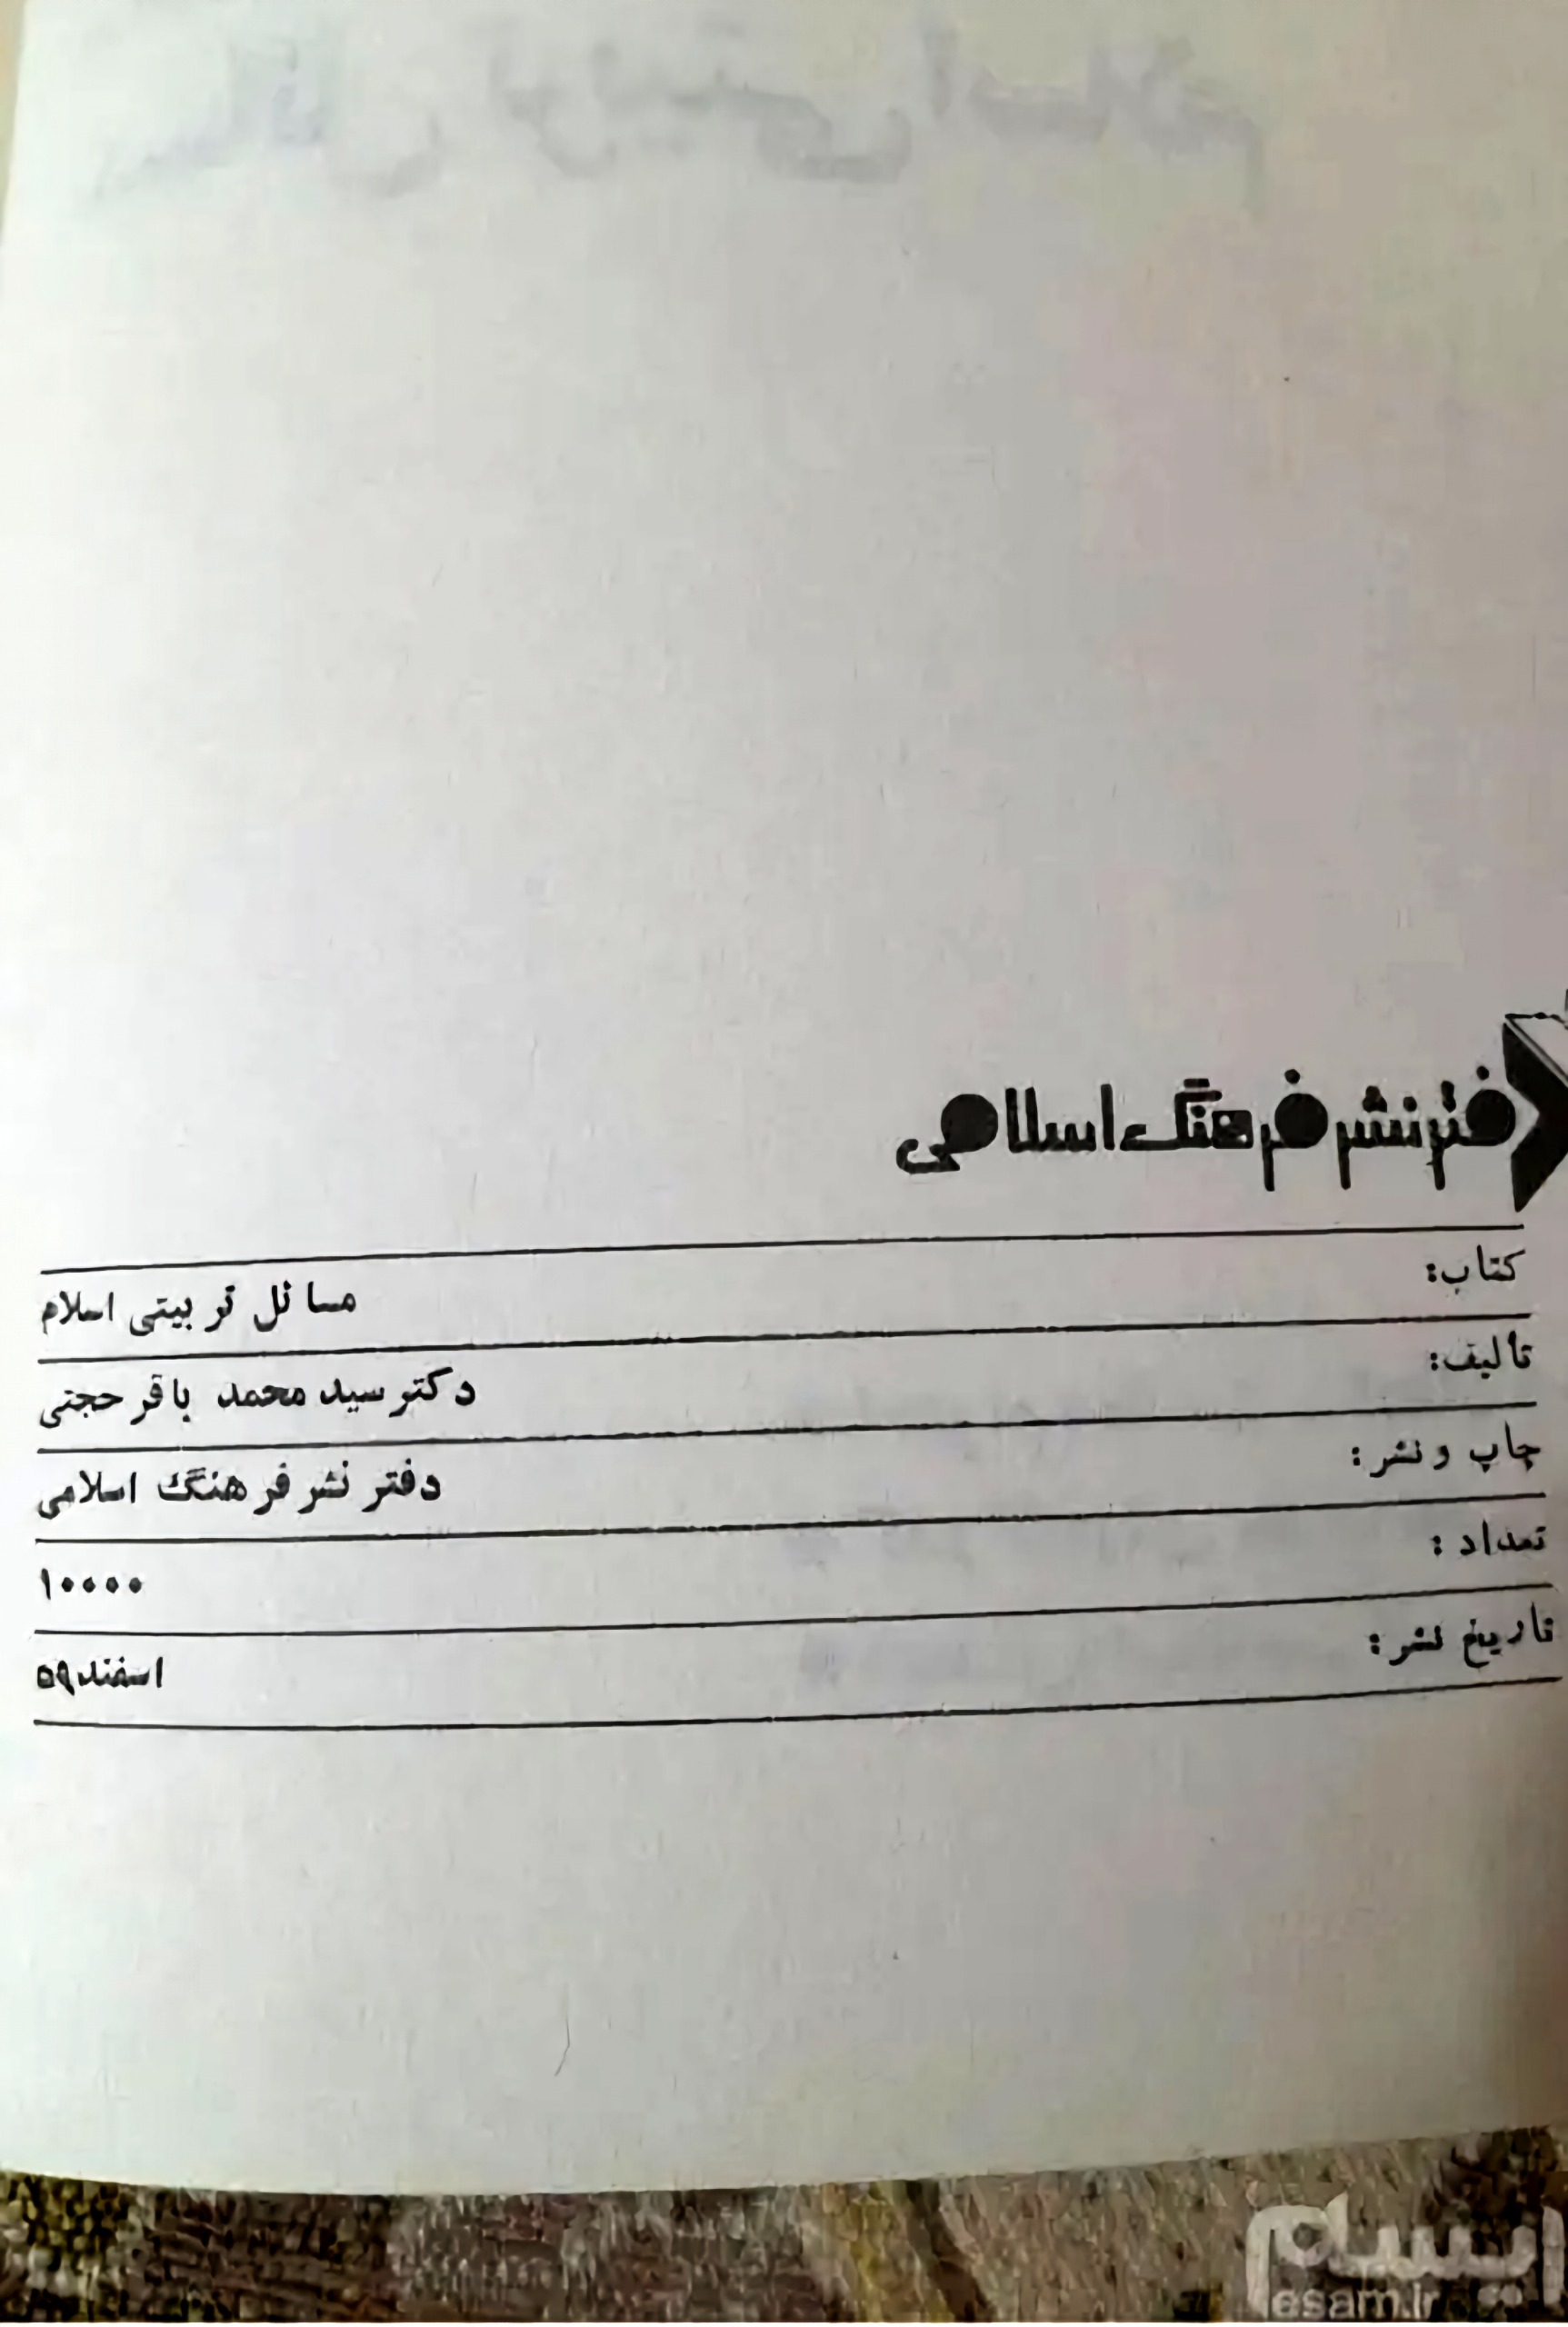 دفتر نشر فرهنگ اسلامی
کتاب: مسائل تربیتی اسلام
تألیف: دکتر سید محمد باقر حجتی
چاپ و نشر: دفتر نشر فرهنگ اسلامی
تعداد: ۱۰۰۰۰
تاریخ نشر: اسفند ۵۹
ایسام
esam.ir